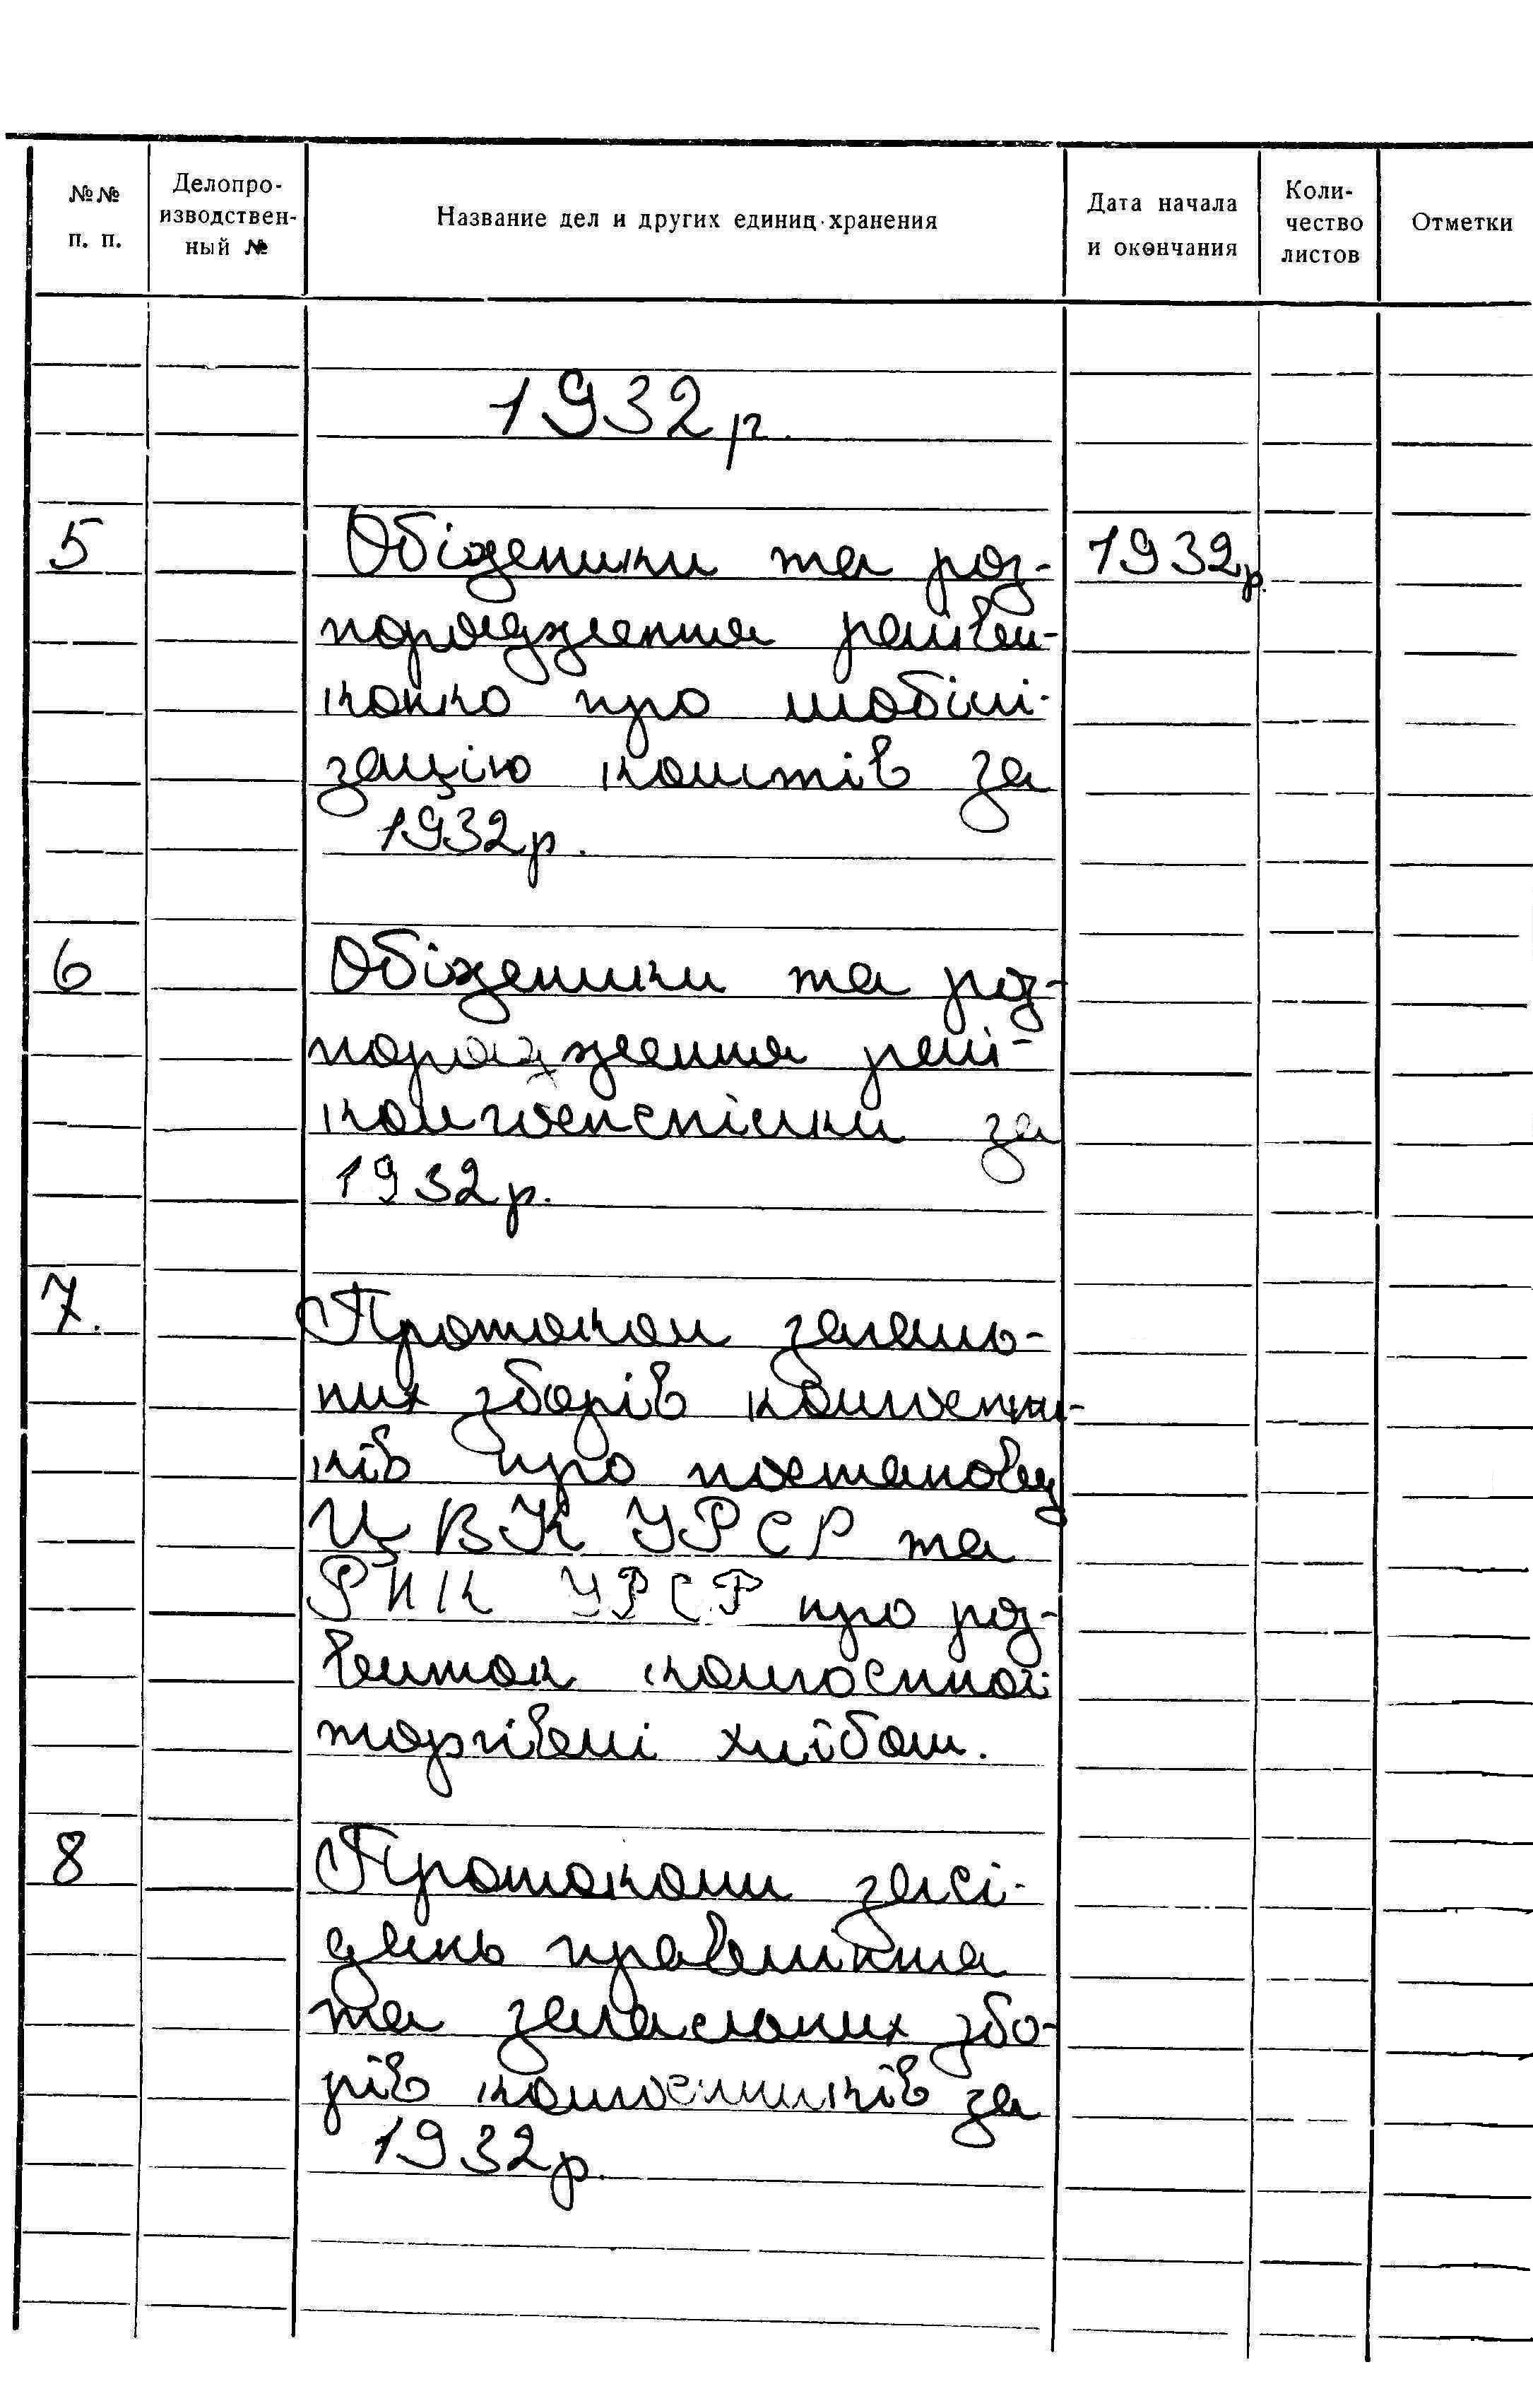 №№ п. п.
Делопро-
изводствен-
ный №
Название дел и других единиц хранения
Дата начала
и окончания
Коли-
чество
листов
Отметки
1932 р.
5 Обіжники та роз- 1932р.
порядження
про мобілі-
зацію коштів за
1932р.
6 Обіжники та роз-
порядження
колгоспспілки за
1932р.
7. Протокол загаль-
них зборів колгоспни-
ків про постанову
ЦВК УРСР та
РНК УРСР про роз-
виток колгоспної
торгівлі хлібом.
8 Протоколи засі-
день правління
та загальних збо-
рів колгоспників за
1932р.